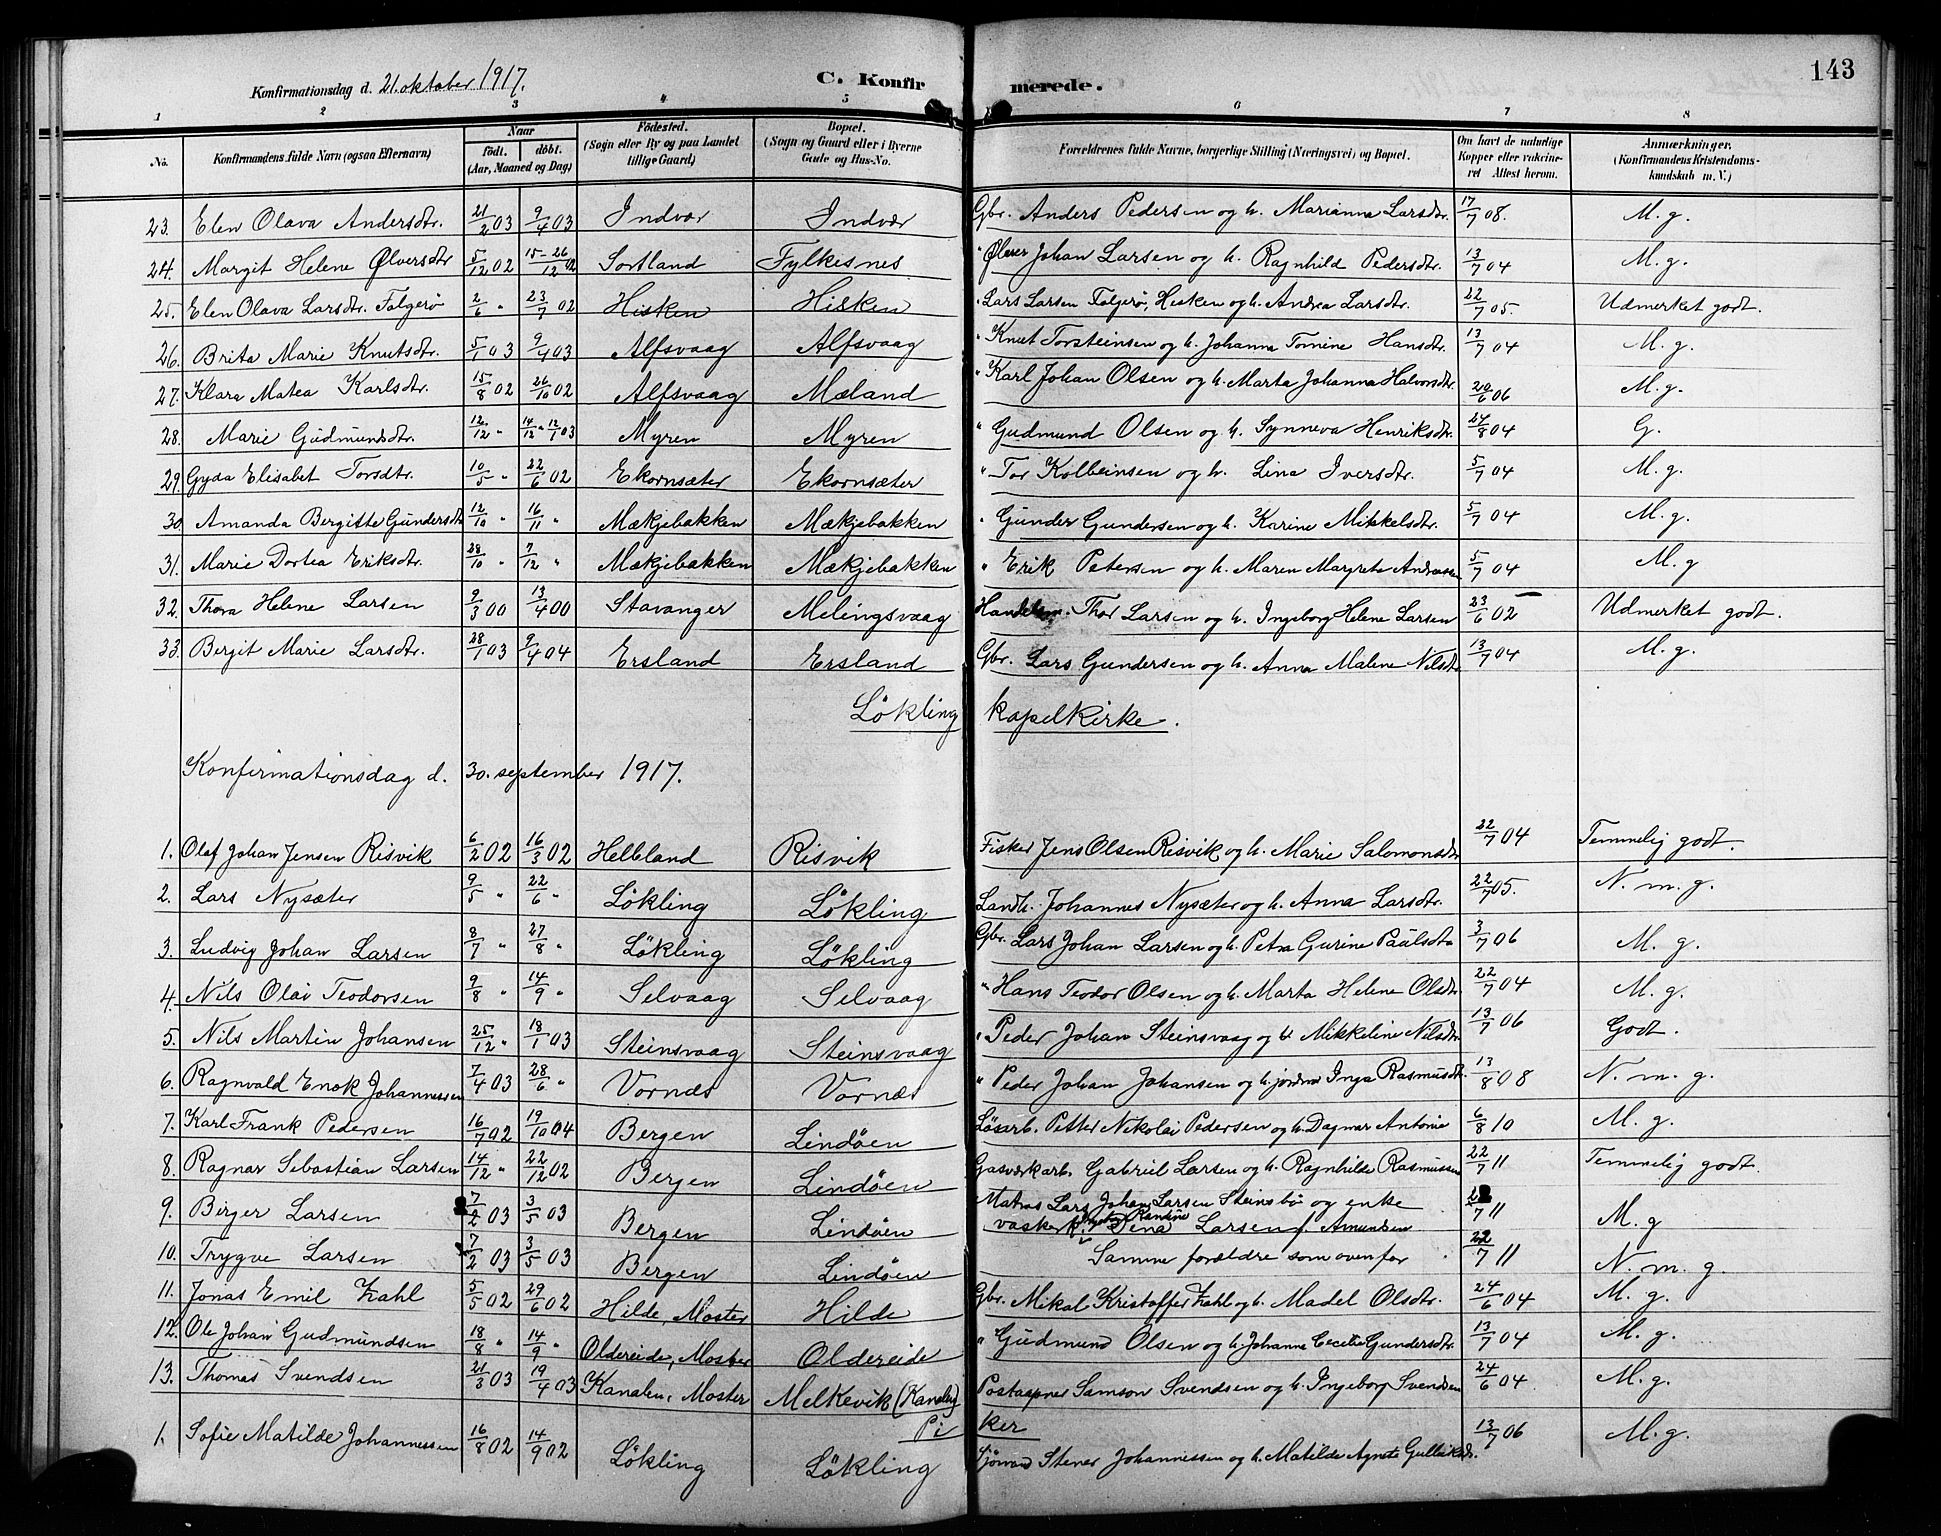 143
Konfirmationsdag d. 21. oktober 1917. C. Konfirmerede.
1 2 3 4 5 6 7 8
No. Konfirmandens fulde Navn (ogsaa Efternavn) Naar født. døbt. (Aar, Maaned og Dag) Fødested. (Sogn eller By og paa Landet tillige Gaard) Bopæl. (Sogn og Gaard eller i Byerne Gade og Hus-No. Forældrenes fulde Navne, borgerlige Stilling (Næringsvei) og Bopæl. Om havt de naturlige Kopper eller vaccineret Attest herom. Anmærkninger. (Konfirmandens Kristendomskundskab m. V.)
23. Elen Olava Andersdtr. 21/2 03 9/4 03 Indvær Indvær Gbr. Anders Pedersen og h. Marianna Larsdtr. 17/7 08. M. g.
24. Margit Helene Ølversdtr 5/12 02 15-26/12 02 Sortland Fylkesnes " Ølver Johan Larsen og h. Ragnhild Pedersdtr. 13/7 04 M. g.
25. Elen Olava Larsdtr. Folgerø 2/6 " 23/7 02 Hisken Hisken " Lars Larsen Folgerø, Hisken og h. Andrea Larsdtr. 22/7 05. Udmerket godt.
26. Brita Marie Knutsdtr. 5/1 03 9/4 03 Alfsvaag Alfsvaag " Knut Torsteinsen og h. Johanna Tomine Hansdtr. 13/7 04 M. g.
27. Klara Matea Karlsdtr. 15/8 02 26/10 02 Alfsvaag Mæland " Karl Johan Olsen og h. Marta Johanna Halvorsdtr. 29/6 06 M. g.
28. Marie Gudmundsdtr. 12/12 " 14/12 " 12/1 03 Myren Myren " Gudmund Olsen og h. Synneva Henriksdtr. 24/8 04 G.
29. Gyda Elisabet Torsdtr. 10/5 " 22/6 02 Ekornsæter Ekornsæter " Tor Kolbeinsen og h. Lina Iversdtr. 5/7 04 M. g.
30. Amanda Bergitte Gundersdtr 12/10 " 16/11 " Mækjebakken Mækjebakken " Gunder Gundersen og h. Karine Mikkelsdtr. 5/7 04 M. g.
31. Marie Dortea Eriksdtr. 28/10 " 7/12 " Mækjebakken Mækjebakken " Erik Petersen og h. Maren Margreta Andreassen 5/7 04 M. g
32. Thora Helene Larsen 9/3 00 13/4 00 Stavanger Melingsvaag Handelsm. Thor Larsen og h. Ingeborg Helene Larsen 23/6 02 Udmerket godt.
33. Bergit Marie Larsdtr. 28/1 03 9/4 04 Ersland Ersland Gbr. Lars Gundersen og h. Anna Malene Nilsdtr 13/7 04 M. g.
Løkling kapelkirke.
Konfirmationsdag d. 30. september 1917.
1. Olaf Johan Jensen Risvik 6/2 02 16/3 02 Helbland Risvik Fisker Jens Olsen Risvik og h. Marie Salomonsdtr 22/7 04 Temmelig godt.
2. Lars Nysæter 9/5 " 22/6 " Løkling Løkling Landh. Johannes Nysæter og h. Anna Larsdtr. 22/7 05. N. m. g.
3. Ludvig Johan Larsen 8/7 " 27/8 " Løkling Løkling Gbr. Lars Johan Larsen og h. Petra Gurine Paulsdtr 3/7 06 M. g.
4. Nils Olai Teodorsen 9/8 " 14/9 " Selvaag Selvaag " Hans Teodor Olsen og h. Marta Helene Olsdtr. 22/7 04 M. g.
5. Nils Martin Johansen 25/12 " 18/1 03 Steinsvaag Steinsvaag " Peder Johan Steinsvaag og h. Mikkeline Nilsdtr 13/7 06 Godt.
6. Ragnvald Enok Johannessen 7/4 03 28/6 " Vornes Vornes " Peder Johan Johansen og h. jordm. Inga Rasmusdtr. 13/8 08 N. m. g.
7. Karl Frank Pedersen 16/7 02 19/10 04 Bergen Lindøen Løsarb. Petter Nikolai Pedersen og h. Dagmar Antonie 6/8 10 M. g.
8. Ragnar Sebastian Larsen 14/12 " 22/12 02 Bergen Lindøen Gasværkarb. Gabriel Larsen og h. Ragnhilde Rasmussen 22/7 11 Temmelig godt.
9. Birger Larsen 7/2 03 3/5 03 Bergen Lindøen Matros Lars Johan Larsen Steinsbø og enke
vaskerk. Tina Larsen f. Amundsen /7 11 M. g
10. Trygve Larsen 7/2 03 3/5 03 Bergen Lindøen Samme forældre som ovenfor. 22/7 11 N. m. g.
11. Jonas Emil Zahl 5/5 02 29/6 02 Hilde, Moster Hilde Gbr. Mikal Kristoffer Zahl og h. Madel Olsdtr. 24/6 04 M. g.
12. Ole Johan Gudmundsen 18/8 " 14/9 " Oldereide, Moster Oldereide " Gudmund Olsen og h. Johanna Cecilie Gundersdtr. 13/7 04 M. g.
13. Thomas Svendsen 21/3 03 19/4 03 Kanalen, Moster Melkevik (Kanalen) Postaapner Samson Svendsen og h. Ingeborg Svendsen 24/6 04. M. g.
Piker
1. Sofie Matilde Johannessen 16/8 02 14/9 02 Løkling Løkling Sjømand Stener Johannessen og h. Matilde Agnete Gulleiksdr. 13/7 06 M. g.